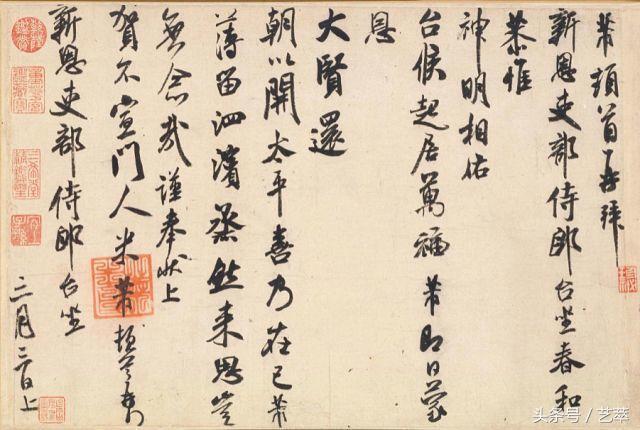 芾頓首再拜
新恩吏部侍郎台坐春和
恭惟
神明相佑
台候起居萬福芾即日蒙
恩
大賢還
朝以開太平喜乃在己芾
薄留泗濱蒸然來思豈
無念哉謹奉狀上
賀不宣門人米芾頓首
新恩吏部侍郎台坐
三月三日上
头条号 / 艺萃